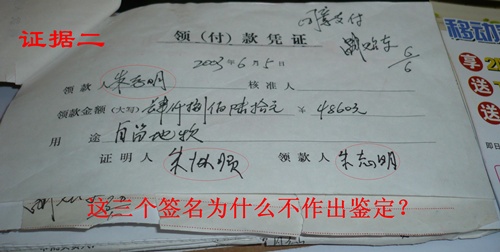 证据二
同意支付
领(付)款凭证
6/6
2003年6月5日
领款人 朱志明 核准人
领款金额(大写) 肆仟捌佰陆拾元 ¥4860元
用途 自留地款
证明人 朱 领款人 朱志明
这三个签名为什么不作出鉴定?
移动
享
送
送
即日